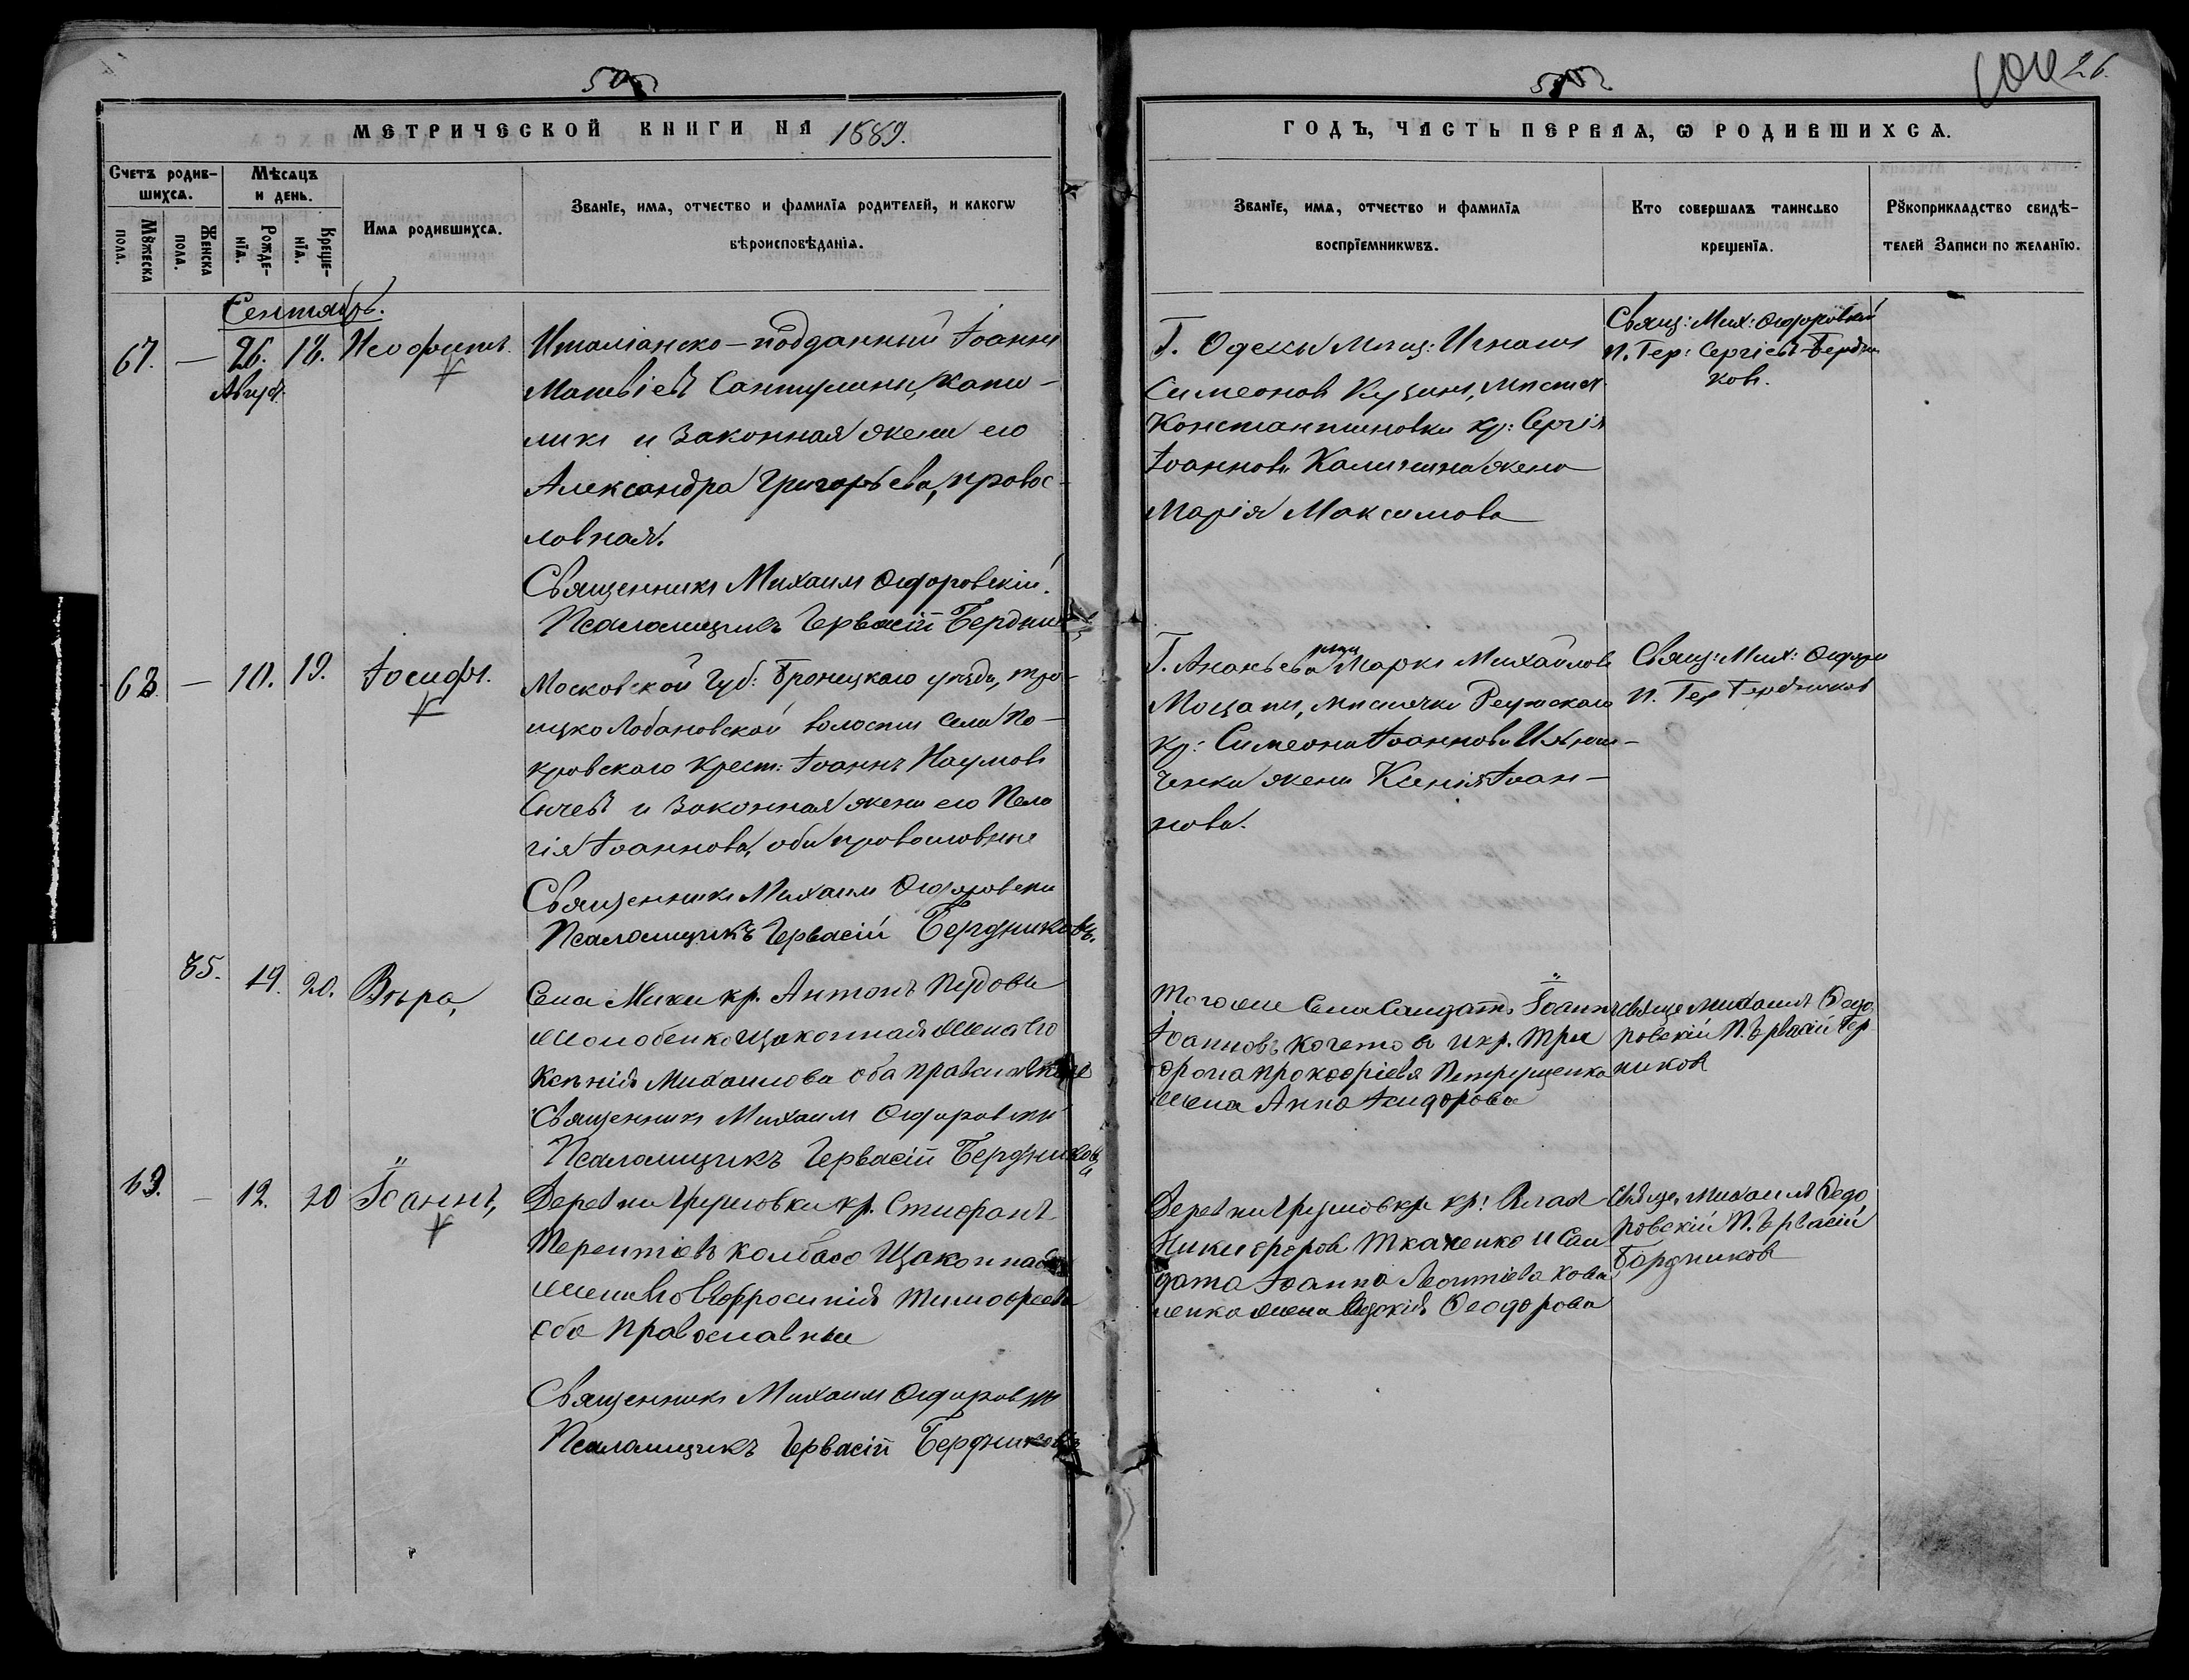 505
505
26.
МЕТРИЧЕСКОЙ КНИГИ НА 1889.
ГОДЪ, ЧАСТЬ ПЕРВАѦ, Ѡ РОДИВШИХСѦ.
Счетъ родив-
шихсѧ.
Мѣсѧцъ
и день.
Мꙋжеска
пола.
Женска
пола.
Рожде-
нїѧ.
Креще-
нїѧ.
Имѧ родившихсѧ.
Званїе, имѧ, отчество и фамилїѧ родителей, и какогѡ
вѣроисповѣданїѧ.
Званїе, имѧ, отчество и фамилїѧ
воспрїемникѡвъ.
Кто совершалъ таинство
крещенїѧ.
Рꙋкоприкладство свидѣ-
телей Записи по желанїю.
Сентябрь.
67. — 26. 18. Неофитъ.
Август.
Италіанско-подданный Іоаннъ
Матвѣевъ Сантулинъ, като-
ликъ и законная жена его
Александра Григорьева, правос-
лавная.
Священникъ Михаилъ Ѳедоровскій.
Псаломщикъ Гервасій Бердник
Г. Одессы Мѣщ: Игнатъ
Симеоновъ Кузинъ, мѣстеч.
Константиновки кр: Сергія
Іоаннова Калинина жена
Марія Максимова
Свящ: Мих: Ѳедоровскій
П. Гер: Сергіевъ Бердни
ковъ.
68. — 10. 19. Іосифъ.
Московской Губ: Бронецкаго уѣзда, тро-
ицко Лобановской волости Села По-
кровскаго Крест: Іоаннъ Наумовъ
Сычевъ и законная жена его Пела
гія Іоаннова, оба православные
Священникъ Михаилъ Ѳедоровскій
Псаломщикъ Гервасій Бердниковъ.
Г. Ананьева Марко Михайловъ
кр: Симеона Іоаннова
ченка жена Ксенія Іоан-
нова.
Свящ: Мих: Ѳедоро
П. Гер Бердников
85. 19. 20. Вѣра,
Села Михи кр. Антонъ
законная жена его
Ксенія Михаилова оба православные
Священникъ Михаилъ Ѳедоровскій
Псаломщикъ Гервасій Бердниковъ
Того же Села Солдатъ Іоаннъ
Іоанновъ Кочетовъ и кр. Три
фона Прокофіева Петрущенка
жена Анна Исидорова
Свяще Михаилъ Ѳедо
ровскій П. Ервасій Бер
никовъ
69. — 12. 20 Іоаннъ,
Деревни Грушовки кр. Стефанъ
Терентіевъ Колбасо и законная
жена его Евфросинія Тимофеева
оба Православные
Священникъ Михаилъ Ѳедоровскій
Псаломщикъ Гервасій Бердниковъ
Деревни Грушовки кр:
Никифоровъ Ткаченко и Сол
дата Іоанна Леонтіева Кова
ленка жена Ѳеодорова
Свяще, Михаилъ Ѳедо
ровскій П. Ервасій
Бердниковъ